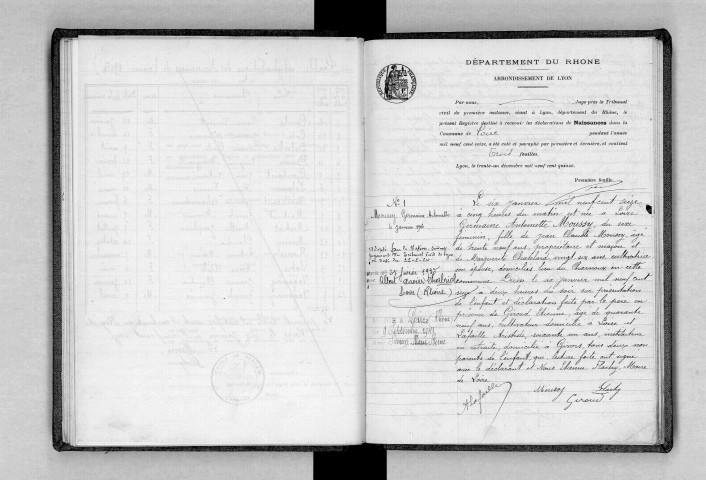 DÉPARTEMENT DU RHONE
ARRONDISSEMENT DE LYON
Par nous, Juge près le Tribunal
civil de première instance, séant à Lyon, département du Rhône, le
présent Registre destiné à recevoir les déclarations de Naissances dans la
Commune de Loire pendant l'année
mil neuf cent seize, a été coté et paraphé par première et dernière, et contient
Trois feuilles.
Lyon, le trente-un décembre mil neuf cent quinze.
Première feuille.
N° 1
Moussy Germaine Antoinette
6 janvier 1916
Adoptée par la Nation suivant
jugement du Tribunal Civil de Lyon
en date du
février 1937
Albert
Loire (Rhône)
Rhône
Septembre
Le six janvier mil neuf cent seize
à cinq heures du matin est née à Loire
Germaine Antoinette Moussy du sexe
féminin, fille de Jean Claude Moussy, âgé
de trente neuf ans, propriétaire et maçon et
de Marguerite Chatelard, vingt six ans, cultivatrice
son épouse, domiciliés lieu du en cette
commune. Dressé le six janvier mil neuf cent
seize à deux heures du soir sur présentation
de l'enfant et déclaration faite par le père en
présence de Giroud Etienne, âgé de quarante
neuf ans, cultivateur domicilié à Loire et
Lafaille Aristide, soixante un ans, instituteur
en retraite, domicilié à Givors, tous deux non
parents de l'enfant, qui, lecture faite ont signé
avec le déclarant et Nous Etienne Flachy, Maire
de Loire.
A Lafaille
Moussy
Flachy
Giroud